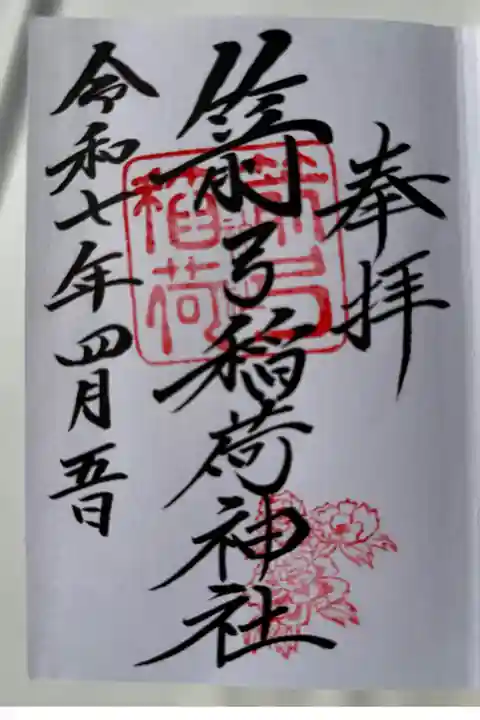 奉拝
箭弓稲荷神社
令和七年四月五日
箭弓稲荷